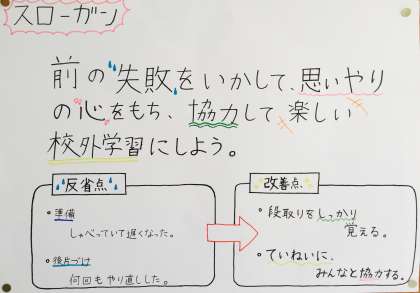 スローガン
前の失敗をいかして、思いやり
の心をもち、協力して楽しい
校外学習にしよう。
反省点
・準備
しゃべっていて遅くなった。
・後片づけ
何回もやり直しした。
改善点
・段取りをしっかり
覚える。
・ていねいに、
みんなと協力する。